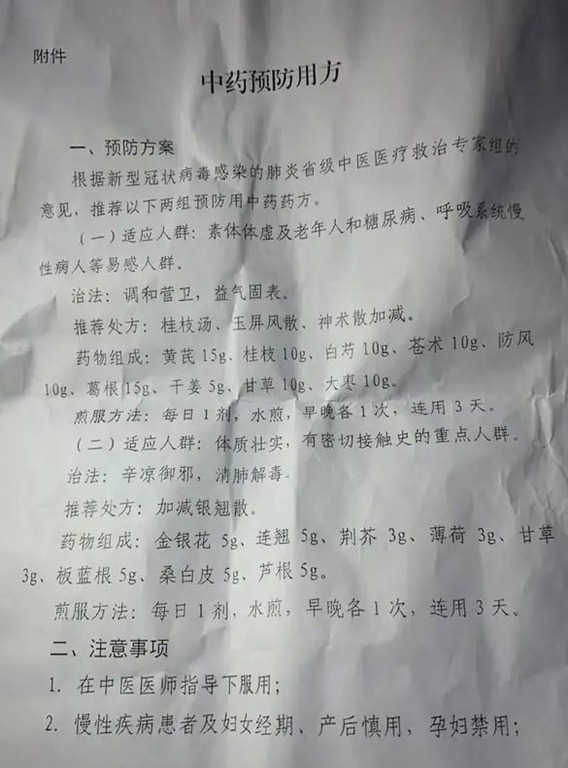 附件
中药预防用方
一、预防方案
根据新型冠状病毒感染的肺炎省级中医医疗救治专家组的
意见，推荐以下两组预防用中药药方。
（一）适应人群：素体体虚及老年人和糖尿病、呼吸系统慢
性病人等易感人群。
治法：调和营卫，益气固表。
推荐处方：桂枝汤、玉屏风散、神术散加减。
药物组成：黄芪 15g、桂枝 10g、白芍 10g、苍术 10g、防风
10g、葛根 15g、干姜 5g、甘草 10g、大枣 10g。
煎服方法：每日 1 剂，水煎，早晚各 1 次，连用 3 天。
（二）适应人群：体质壮实，有密切接触史的重点人群。
治法：辛凉御邪，清肺解毒。
推荐处方：加减银翘散。
药物组成：金银花 5g、连翘 5g、荆芥 3g、薄荷 3g、甘草
3g、板蓝根 5g、桑白皮 5g、芦根 5g。
煎服方法：每日 1 剂，水煎，早晚各 1 次，连用 3 天。
二、注意事项
1. 在中医医师指导下服用；
2. 慢性疾病患者及妇女经期、产后慎用，孕妇禁用；